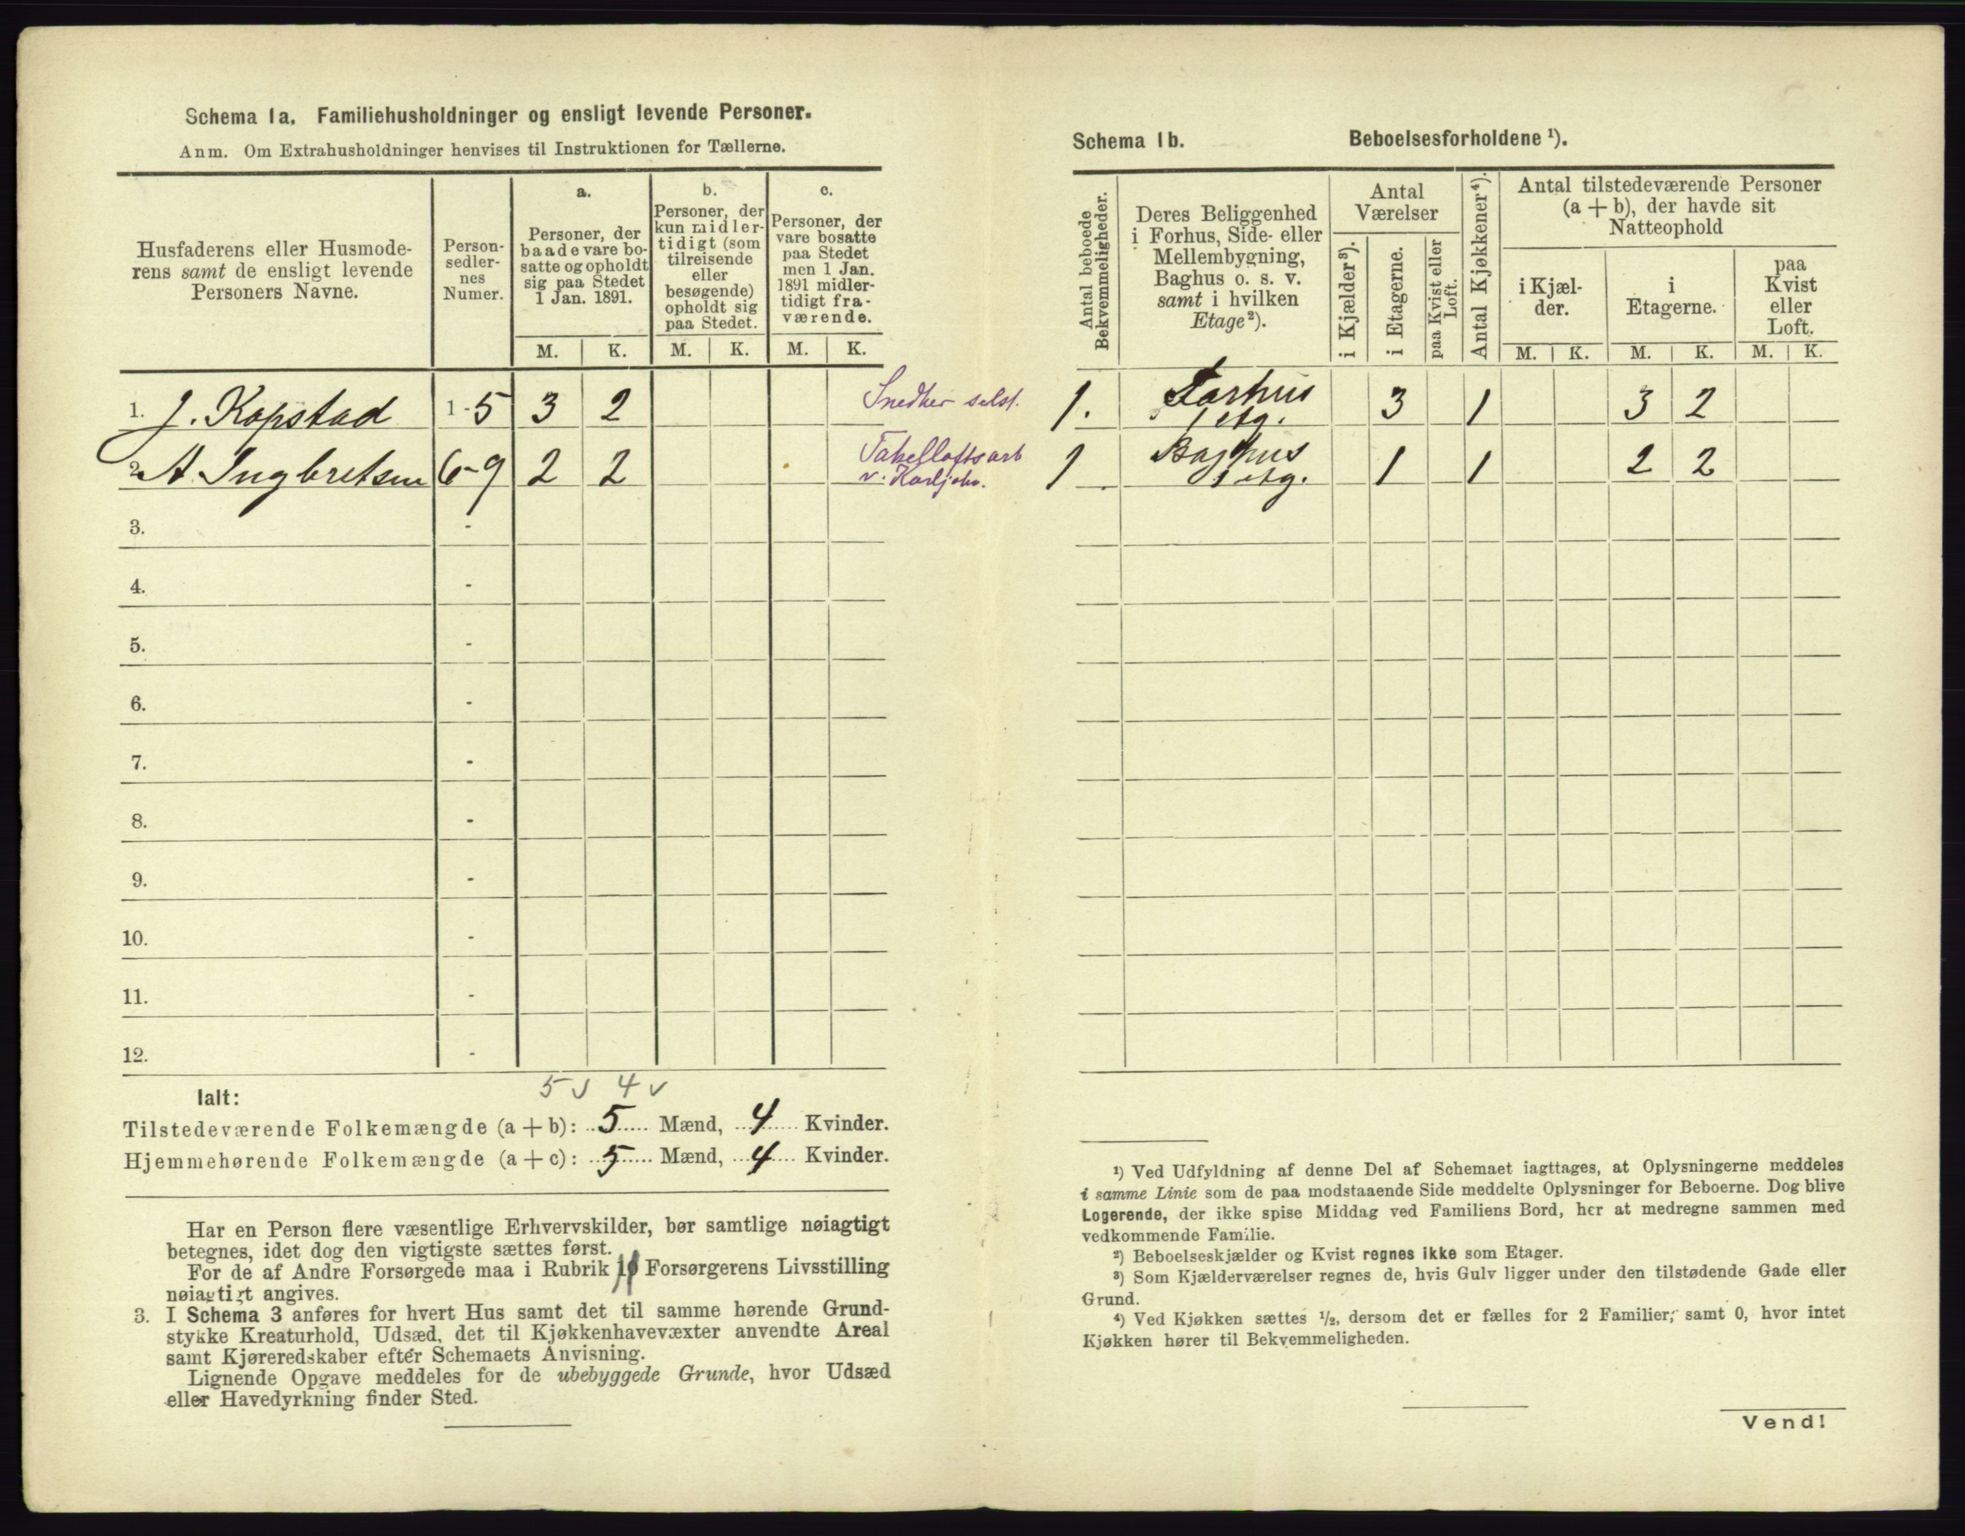 Schema 1a. Familiehusholdninger og ensligt levende Personer.
Anm. Om Extrahusholdninger henvises til Instruktionen for Tællerne.
Husfaderens eller Husmode-
rens samt de ensligt levende
Personers Navne.
Person-
sedler-
nes
Numer.
a.
Personer, der
baade vare bo-
satte og opholdt
sig paa Stedet
1 Jan. 1891.
b.
Personer, der
kun midler-
tidigt (som
tilreisende
eller
besøgende)
opholdt sig
paa Stedet.
c.
Personer, der
vare bosatte
paa Stedet
men 1 Jan.
1891 midler-
tidigt fra-
værende.
M. K. M. K. M. K.
1. J. Kopstad 1-5 3 2 Snedker selst.
2. A. Ingbretsen 6-9 2 2 Takelloftsarb
v. Karljohv.
3. -
4. -
5. -
6. -
7. -
8. -
9. -
10. -
11. -
12. -
5 v 4 v
Ialt:
Tilstedeværende Folkemængde (a + b): 5 Mænd, 4 Kvinder.
Hjemmehørende Folkemængde (a + c): 5 Mænd, 4 Kvinder.
Har en Person flere væsentlige Erhvervskilder, bør samtlige nøiagtigt
betegnes, idet dog den vigtigste sættes først.
For de af Andre Forsørgede maa i Rubrik Forsørgerens Livsstilling
nøiagtigt angives.
3. I Schema 3 anføres for hvert Hus samt det til samme hørende Grund-
stykke Kreaturhold, Udsæd, det til Kjøkkenhavevæxter anvendte Areal
samt Kjøreredskaber efter Schemaets Anvisning.
Lignende Opgave meddeles for de ubebyggede Grunde, hvor Udsæd
eller Havedyrkning finder Sted.
Schema 1b. Beboelsesforholdene ¹).
Antal beboede
Bekvemmeligheder.
Deres Beliggenhed
i Forhus, Side- eller
Mellembygning,
Baghus o. s. v.
samt i hvilken
Etage ²).
Antal
Værelser
i Kjælder ³).
i Etagerne.
paa Kvist eller
Loft.
Antal Kjøkkener ⁴).
Antal tilstedeværende Personer
(a + b), der havde sit
Natteophold
i Kjæl-
der.
i
Etagerne.
paa
Kvist
eller
Loft.
M. K. M. K. M. K.
1. Forhus
1 etg. 3 1 3 2
1 Baghus
1 etg. 1 1 2 2
¹) Ved Udfyldning af denne Del af Schemaet iagttages, at Oplysningerne meddeles
i samme Linie som de paa modstaaende Side meddelte Oplysninger for Beboerne. Dog blive
Logerende, der ikke spise Middag ved Familiens Bord, her at medregne sammen med
vedkommende Familie.
²) Beboelseskjælder og Kvist regnes ikke som Etager.
³) Som Kjælderværelser regnes de, hvis Gulv ligger under den tilstødende Gade eller
Grund.
⁴) Ved Kjøkken sættes ½, dersom det er fælles for 2 Familier, samt 0, hvor intet
Kjøkken hører til Bekvemmeligheden.
Vend!